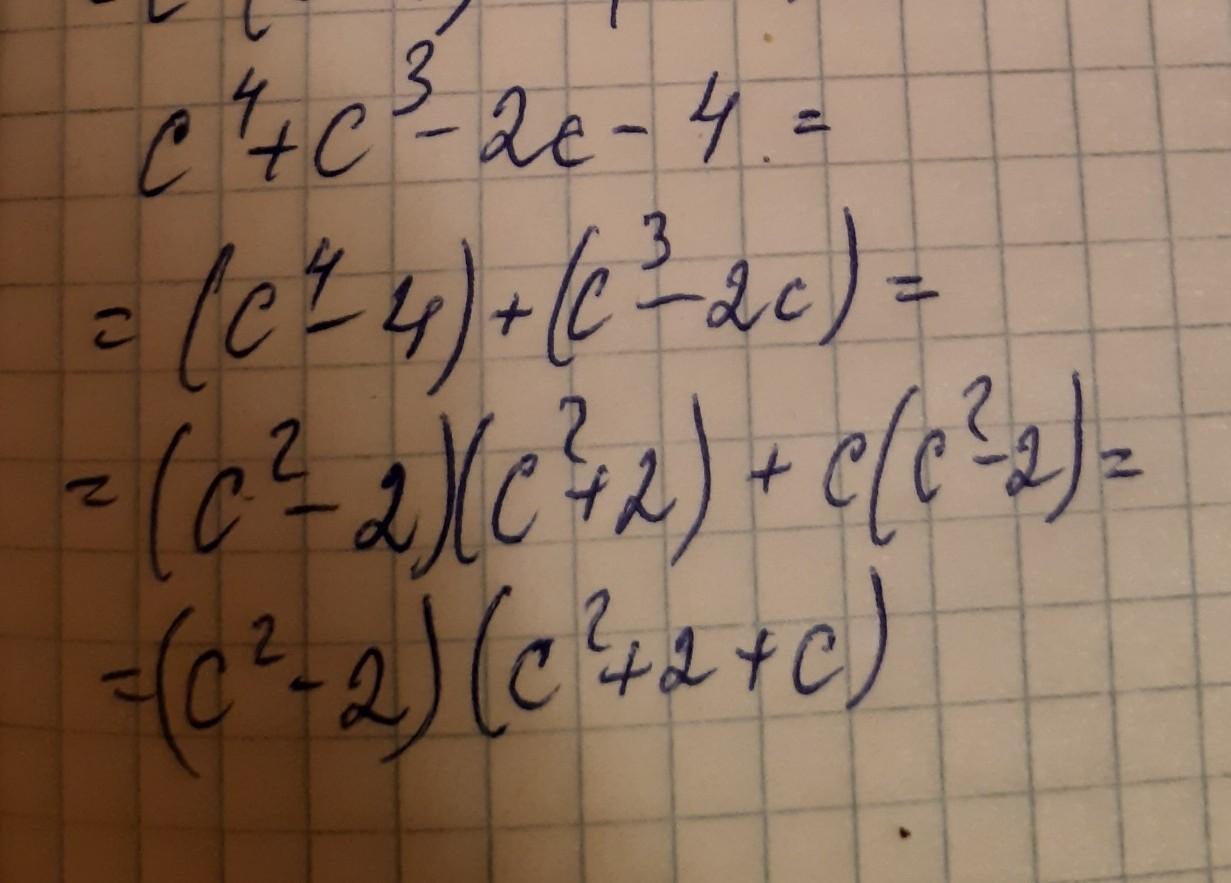 c⁴+c³-2c-4=
=(c⁴-4)+(c³-2c)=
=(c²-2)(c²+2)+c(c²-2)=
=(c²-2)(c²+2+c)